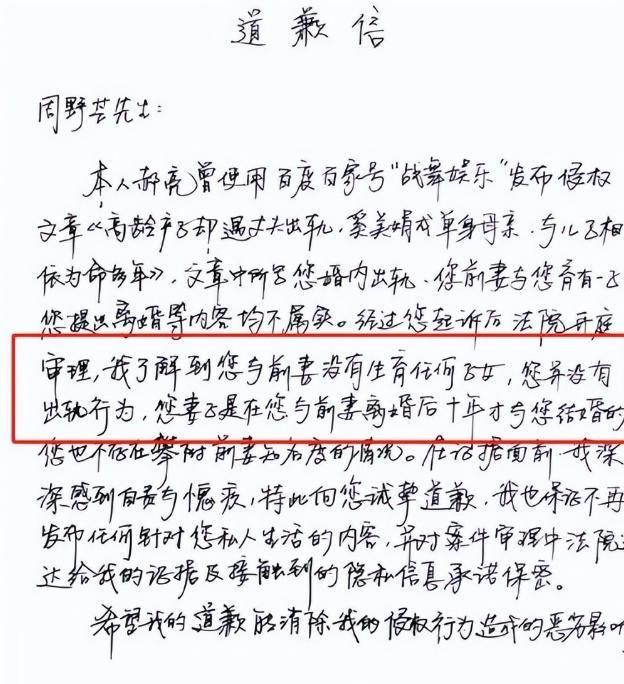 道歉信
周野芒先生:
本人郝亮曾使用百度百家号“战舞娱乐”发布侵权
文章《高龄产子却遇丈夫出轨,奚美娟成单身母亲,与儿子相
依为命多年》,文章中所写您婚内出轨、您前妻与您育有一子
您提出离婚等内容均不属实。经过您起诉后法院开庭
审理,我了解到您与前妻没有生育任何子女,您并没有
出轨行为,您妻子是在您与前妻离婚后十年才与您结婚的
您也不存在攀附前妻知名度的情况。在证据面前,我深
深感到自责与愧疚,特此向您诚挚道歉,我也保证不再
发布任何针对您私人生活的内容,并对案件审理中法院
达给我的证据及接触到的隐私信息承诺保密。
希望我的道歉能消除我的侵权行为造成的恶劣影